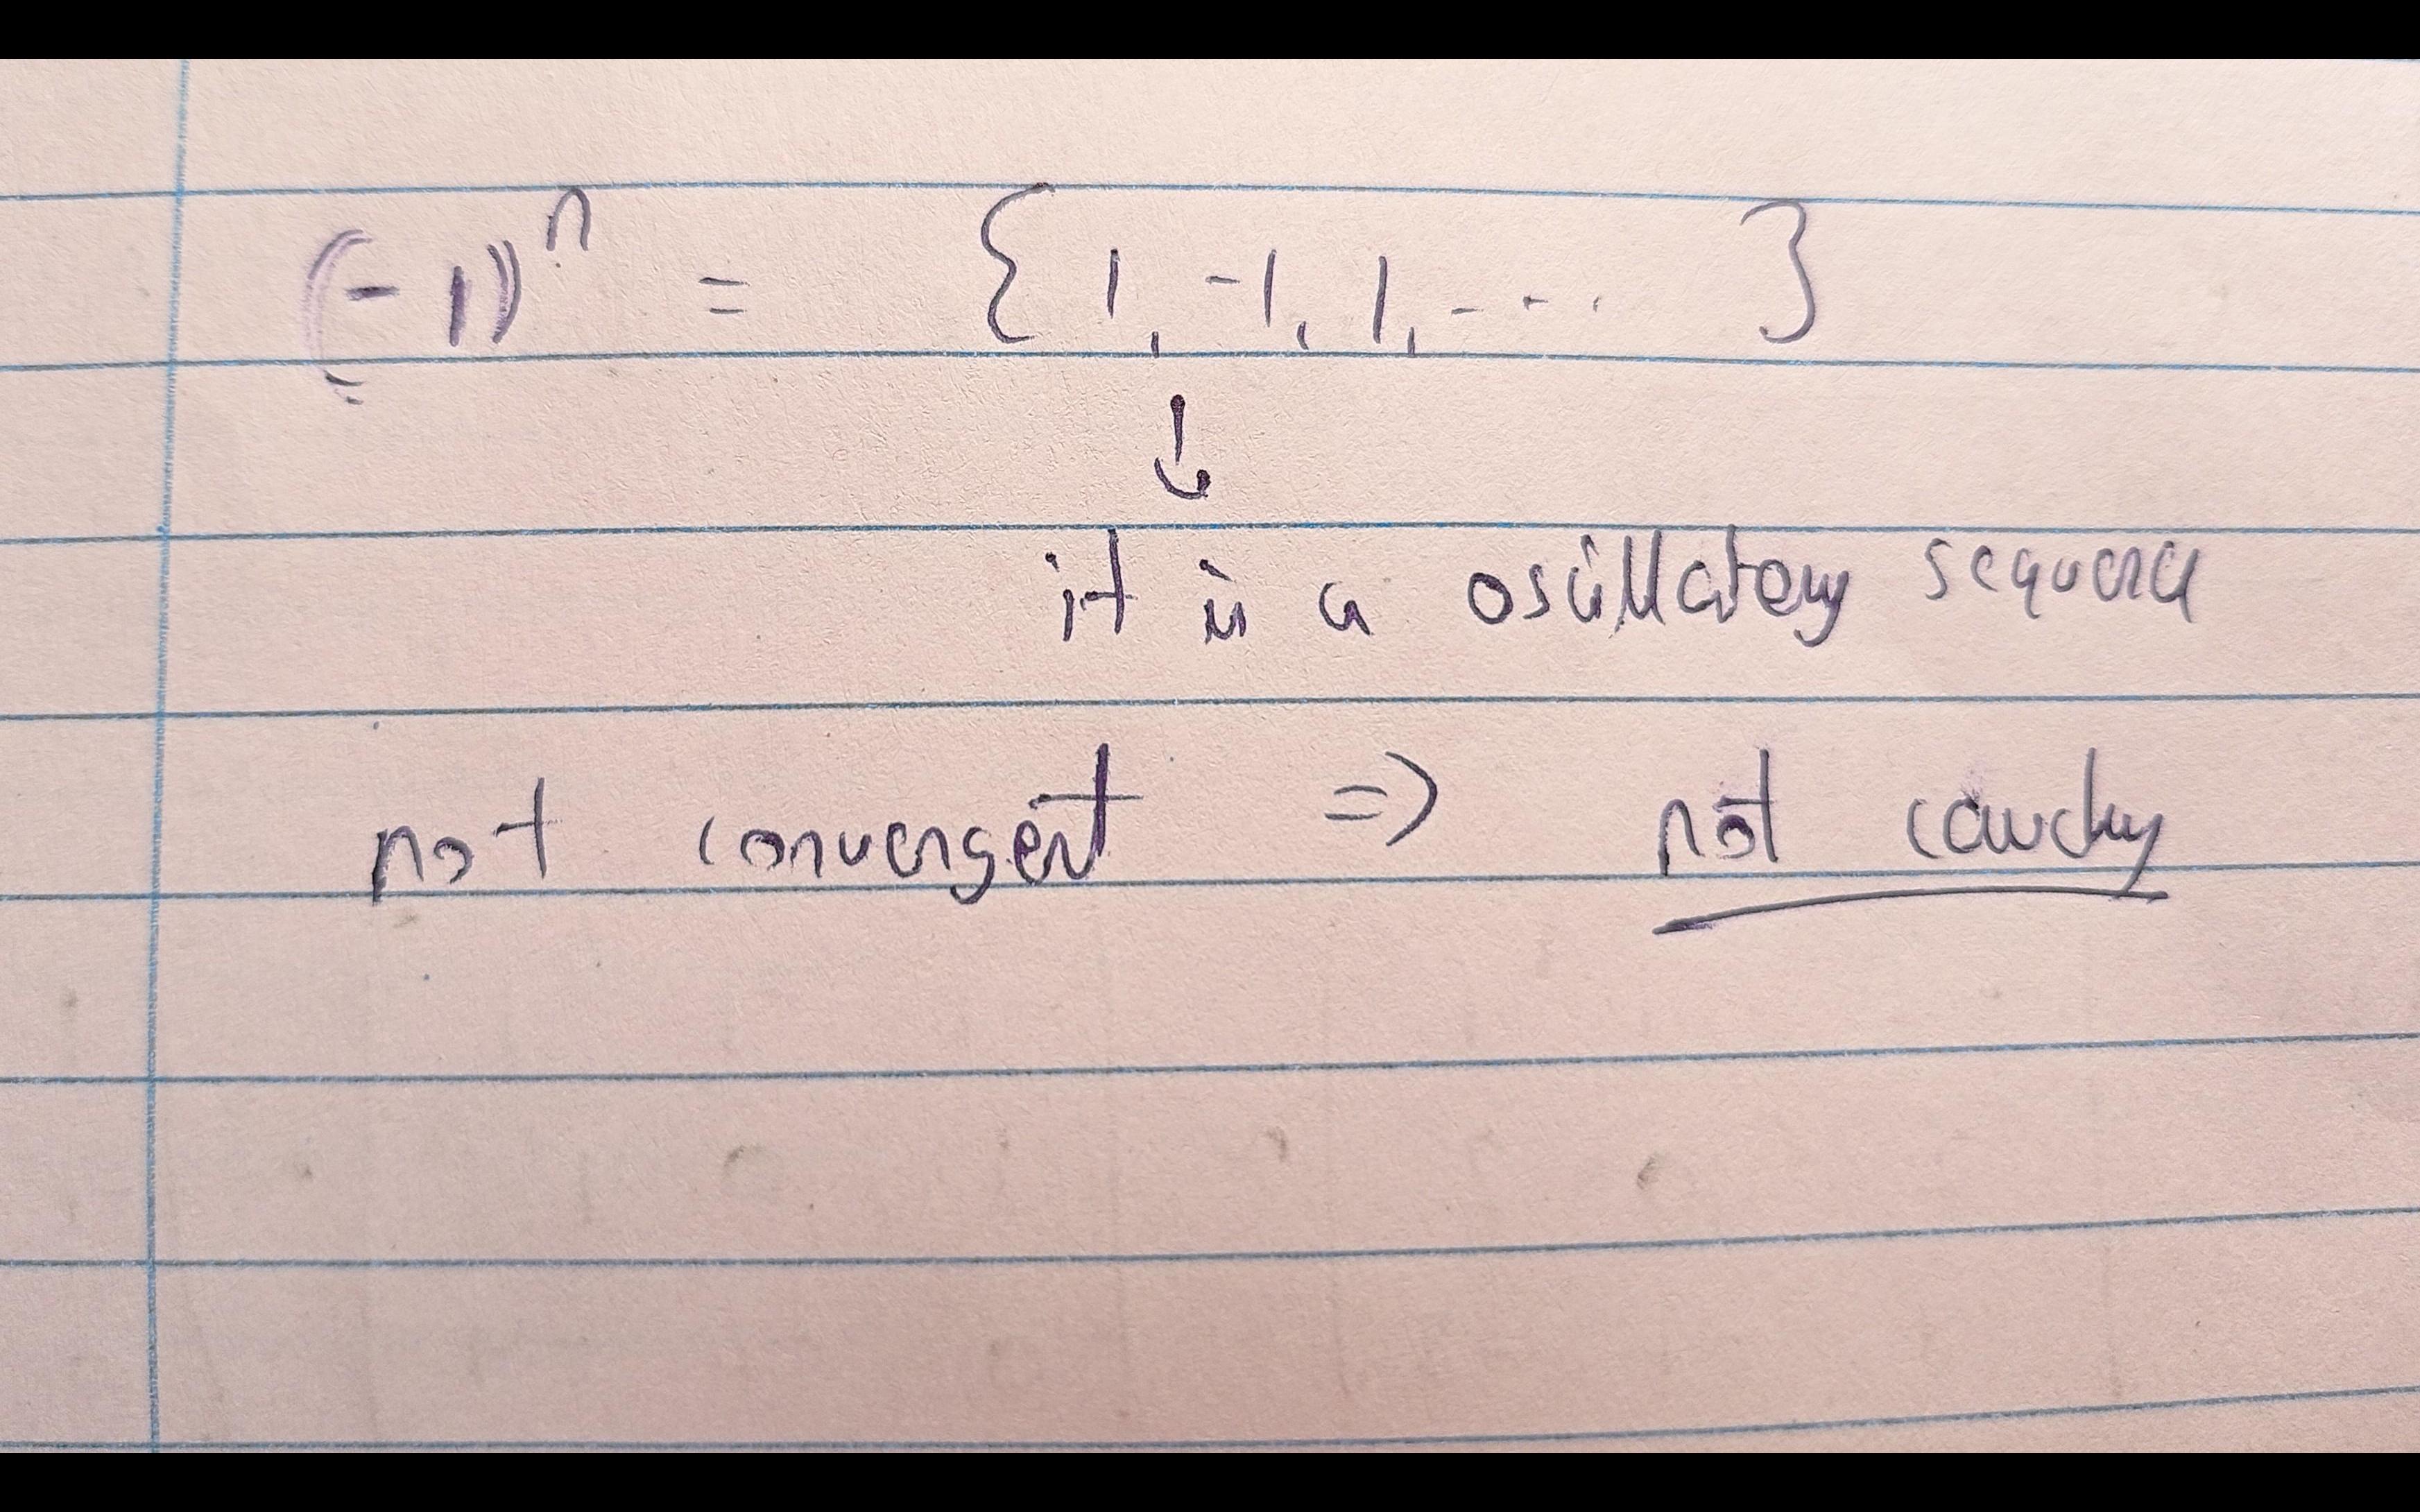 (-1)ⁿ = { 1, -1, 1, - - - }
↓
it is a oscillatory sequence
not convergent => not cauchy